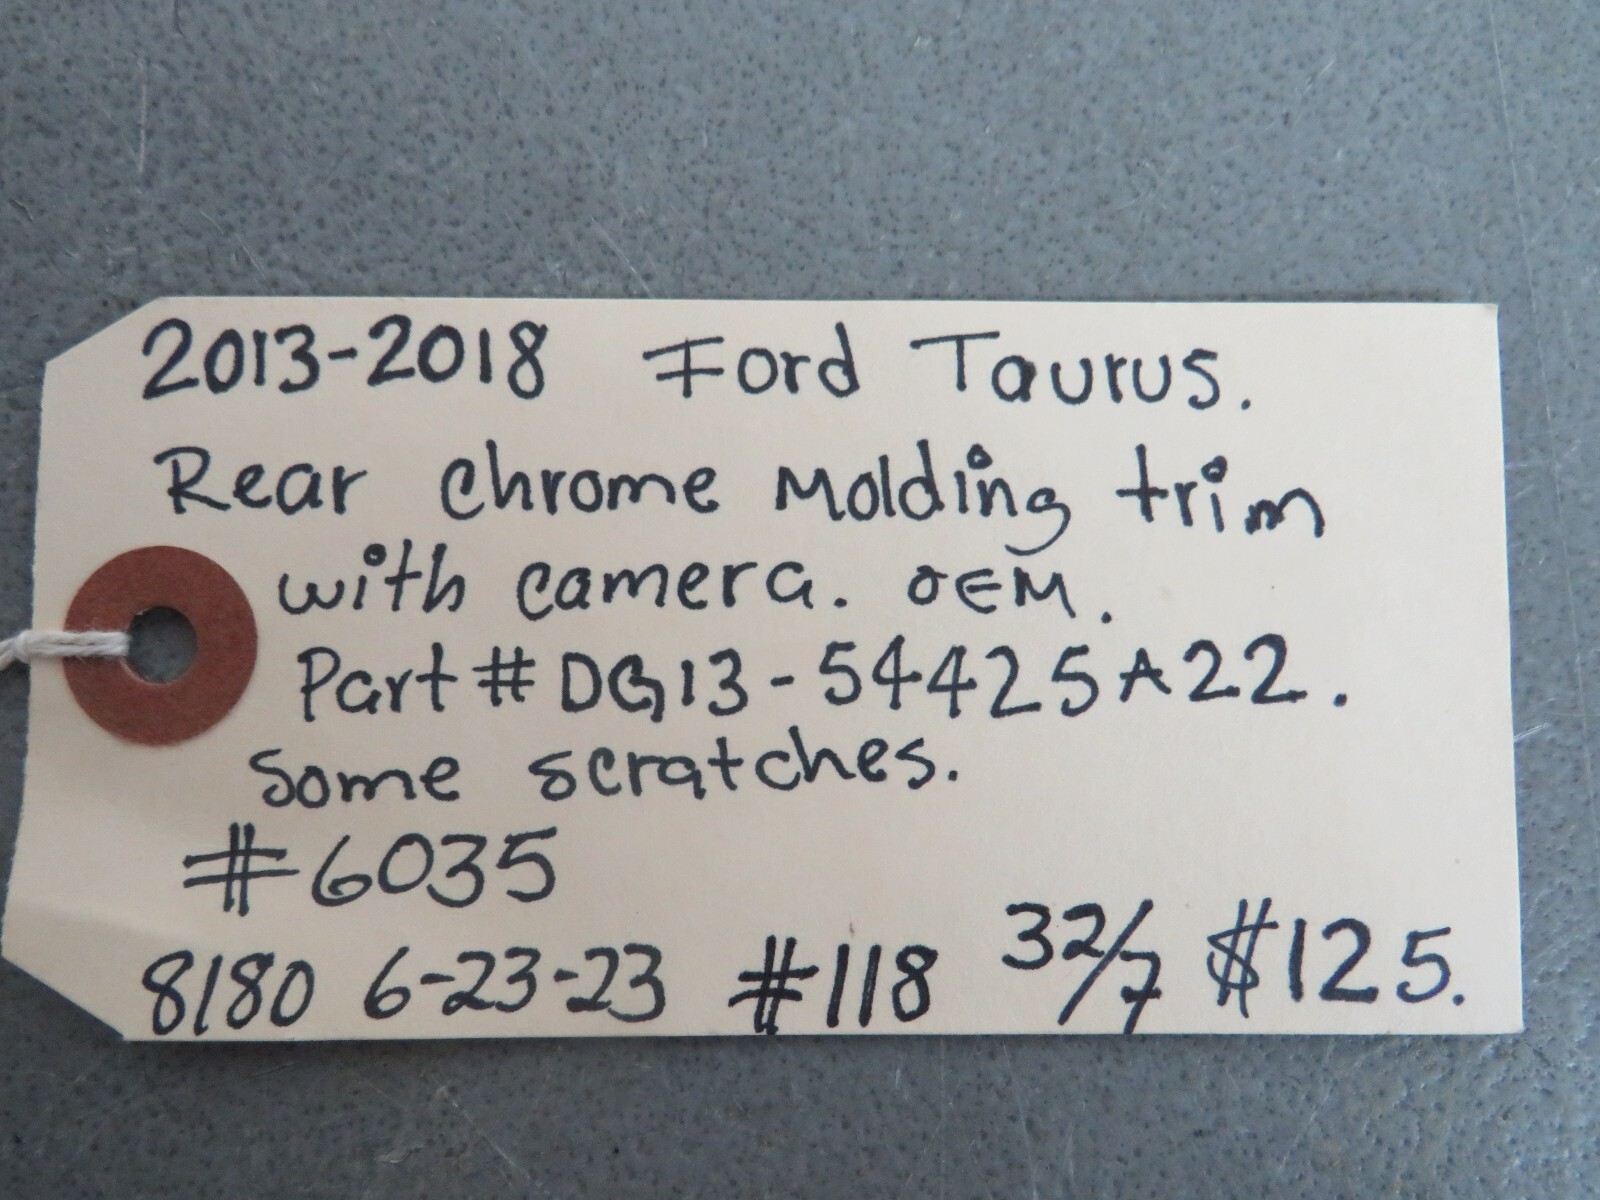 2013-2018 Ford Taurus.
Rear chrome Molding trim
with camera. OEM.
Part # DG13-54425A22.
Some scratches.
#6035
8180 6-23-23 #118 32/7 $125.